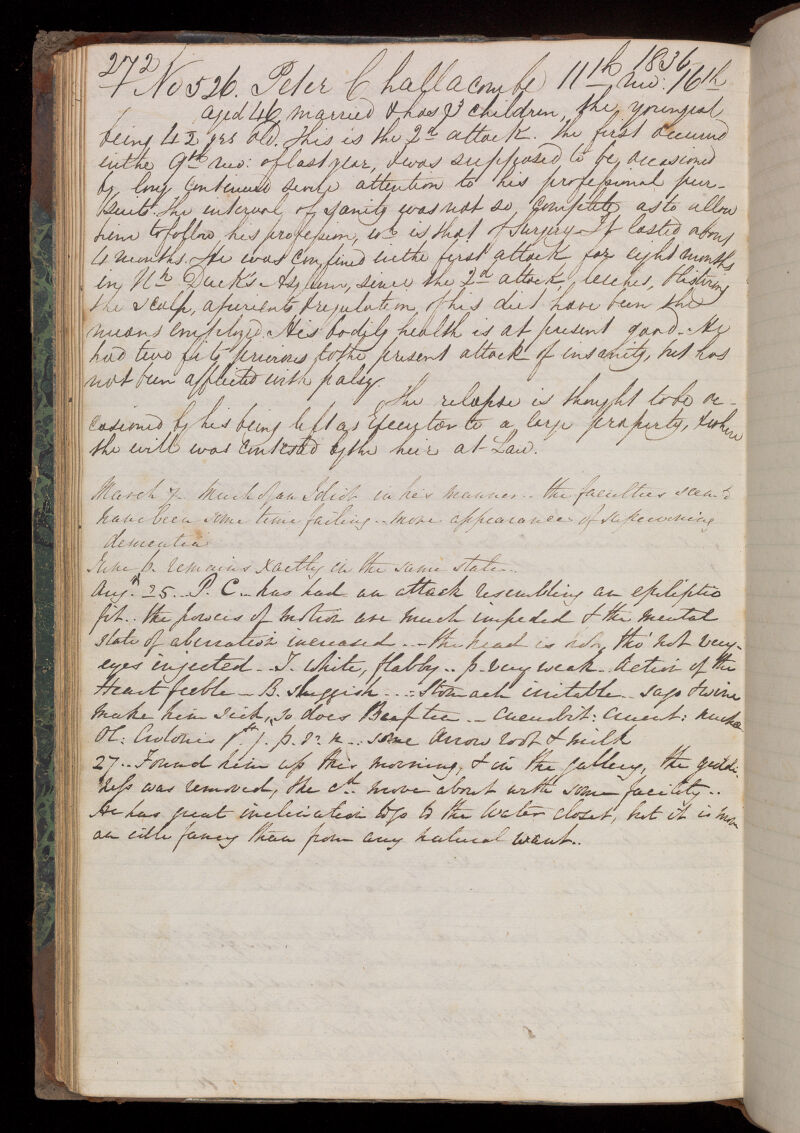 272
1836
No 526. Peter Challacombe 11th mo: 16th
aged 46 married & has 3 children, the youngest
being 4 2 yrs old. This is the 2d attack. The first occurred
in the 9th mo: of last year, & was supposed to be occasioned
by long continued severe attention to his professional pur-
suits. The interval of sanity was not so complete as to allow
him to follow his profession, wch is that of Surgery. It lasted about
4 months. He was confined in the first attack for eight months
in Nh Duck's Asylum, since the 2d attack, leeches, blistering
the scalp, aperients & regulation of his diet have been the
means employed. His bodily health is at present good. He
had two fits previous to the present attack of insanity, but has
not been afflicted with palsy.
The relapse is thought to be oc-
casioned by his being left as Executor to a large property, & where
the will was contested by the heir at Law.
March 7. Much of an Idiot in his manner.. the faculties seem to
have been some time failing.. more appearance of supervening
dementia
June 6. remains xactly in the same state..
Aug. 25.. P. C.. has had an attack resembling an epileptic
fit.. the powers of motion are much impeded & the mental
state of aberration increased.. the head is hot, tho' not very-
eyes injected.. T. white, flabby.. p. very weak.. Action of the
Heart feeble.. B. sluggish... Stomach irritable.. sago & wine
make him sick, so does Beef tea.. Cucurbit: Cruent: nuchae
Ol: Crotonis p. r. n... some Arrow root & milk
27.. Found him up this morning, & in the gallery, the giddi-
ness was removed, & he cd. move about with some facility..
He has great inclination to go to the Water closet, but it is more
an idle fancy than from any natural want..